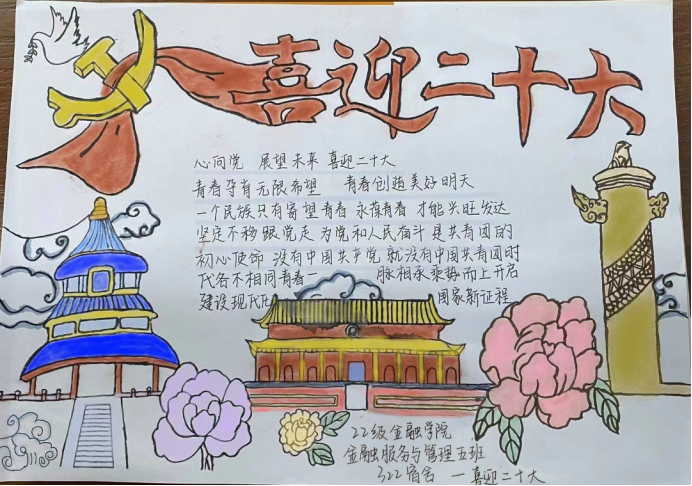 喜迎二十大
心向党 展望未来 喜迎二十大
青春孕育无限希望 青春创造美好明天
一个民族只有寄望青春 永葆青春 才能兴旺发达
坚定不移跟党走 为党和人民奋斗 是共青团的
初心使命 没有中国共产党 就没有中国共青团时
代各不相同青春一 脉相承乘势而上开启
建设现代 国家新征程
22级金融学院
金融服务与管理五班
322宿舍 一喜迎二十大